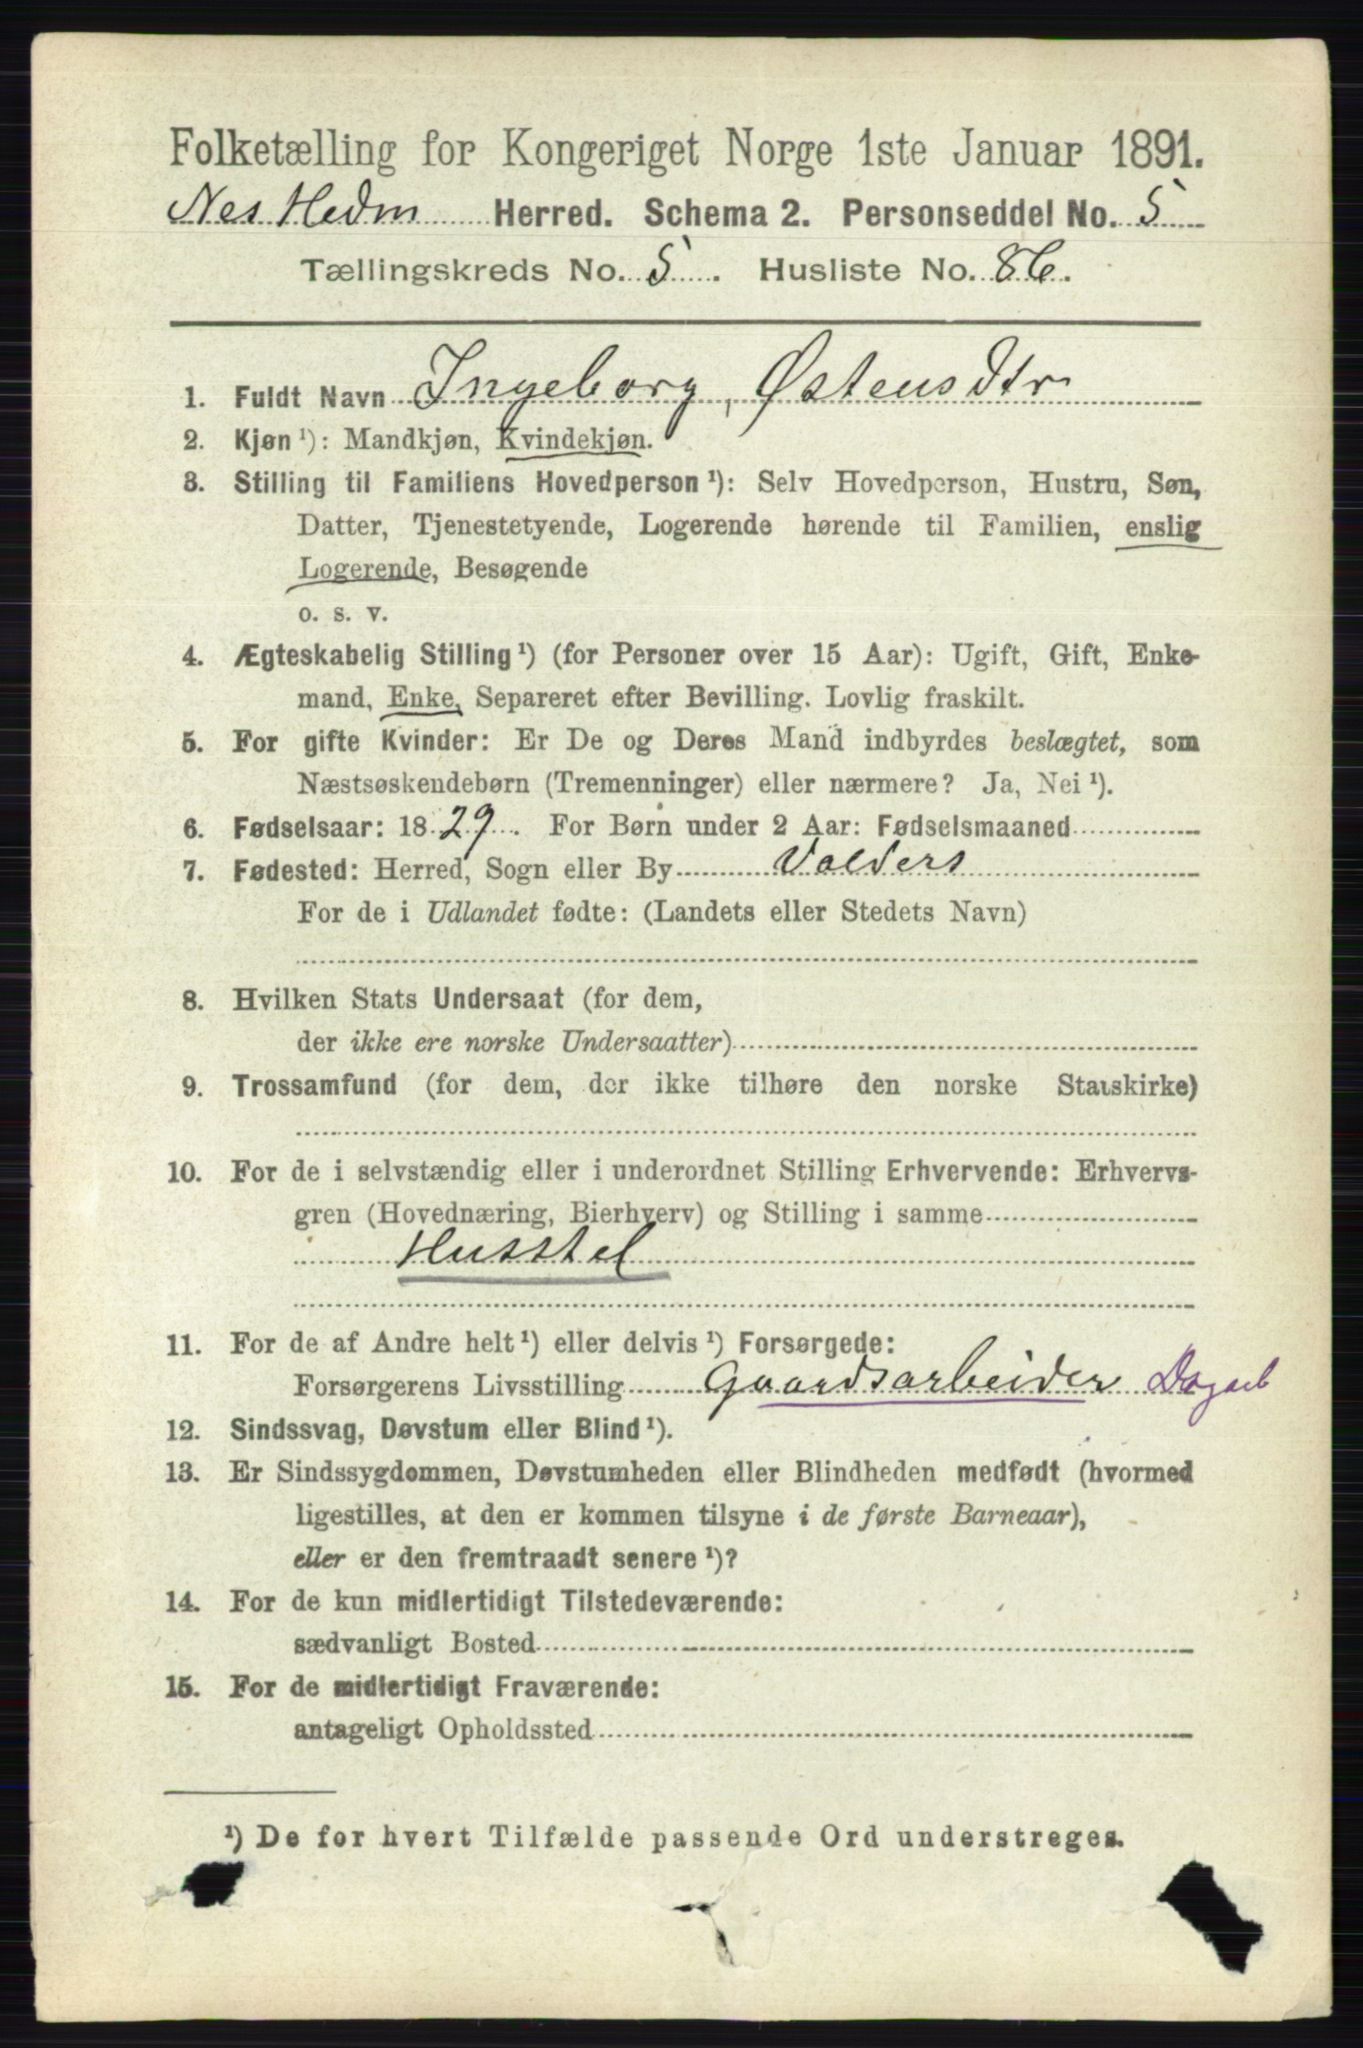 Folketælling for Kongeriget Norge 1ste Januar 1891.
Nes Hedm Herred. Schema 2. Personseddel No. 5
Tællingskreds No. 5. Husliste No. 86.
1. Fuldt Navn Ingeborg, Østensdtr
2. Kjøn ¹): Mandkjøn, Kvindekjøn.
3. Stilling til Familiens Hovedperson ¹): Selv Hovedperson, Hustru, Søn,
Datter, Tjenestetyende, Logerende hørende til Familien, enslig
Logerende, Besøgende
o. s. v.
4. Ægteskabelig Stilling ¹) (for Personer over 15 Aar): Ugift, Gift, Enke-
mand, Enke, Separeret efter Bevilling. Lovlig fraskilt.
5. For gifte Kvinder: Er De og Deres Mand indbyrdes beslægtet, som
Næstsøskendebørn (Tremenninger) eller nærmere? Ja, Nei ¹).
6. Fødselsaar: 1829. For Børn under 2 Aar: Fødselsmaaned
7. Fødested: Herred, Sogn eller By Valders
For de i Udlandet fødte: (Landets eller Stedets Navn)
8. Hvilken Stats Undersaat (for dem,
der ikke ere norske Undersaatter)
9. Trossamfund (for dem, der ikke tilhøre den norske Statskirke)
10. For de i selvstændig eller i underordnet Stilling Erhvervende: Erhvervs-
gren (Hovednæring, Bierhverv) og Stilling i samme
Husstel
11. For de af Andre helt ¹) eller delvis ¹) Forsørgede:
Forsørgerens Livsstilling Gaardsarbeider Dagarb
12. Sindssvag, Døvstum eller Blind ¹).
13. Er Sindssygdommen, Døvstumheden eller Blindheden medfødt (hvormed
ligestilles, at den er kommen tilsyne i de første Barneaar),
eller er den fremtraadt senere ¹)?
14. For de kun midlertidigt Tilstedeværende:
sædvanligt Bosted
15. For de midlertidigt Fraværende:
antageligt Opholdssted
¹) De for hvert Tilfælde passende Ord understreges.